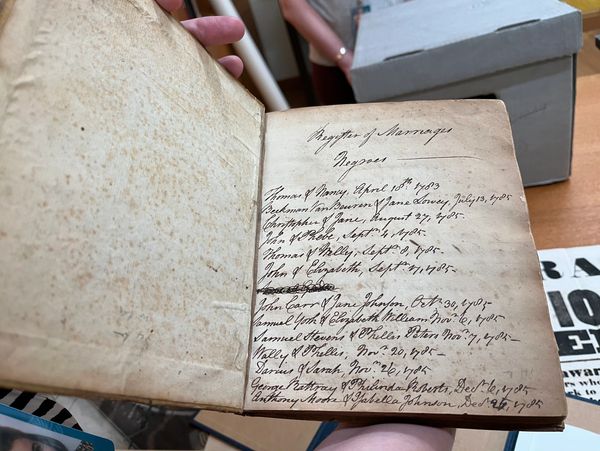 Register of Marriages
Negroes
Thomas & Nancy, April 18th, 1783
Beekman Van Beuren & Jane Lowey, July 13, 1785
Christopher & Jane, August 27, 1785
John & Phebe, Septr. 4, 1785
Thomas & Wally, Septr. 8, 1785
John & Elizabeth, Septr. 17, 1785
John Carr & Jane Johnson, Octr. 30, 1785
Samuel York & Elizabeth William Novr. 6, 1785
Samuel Stevens & Phelles Peters Novr. 7, 1785
Wally & Phelles, Novr. 20, 1785
Darius & Sarah, Novr. 26, 1785
George Rattray & Philinda Roberts, Decr. 6, 1785
Anthony Moore & Isabella Johnson, Decr. 26, 1785
RA